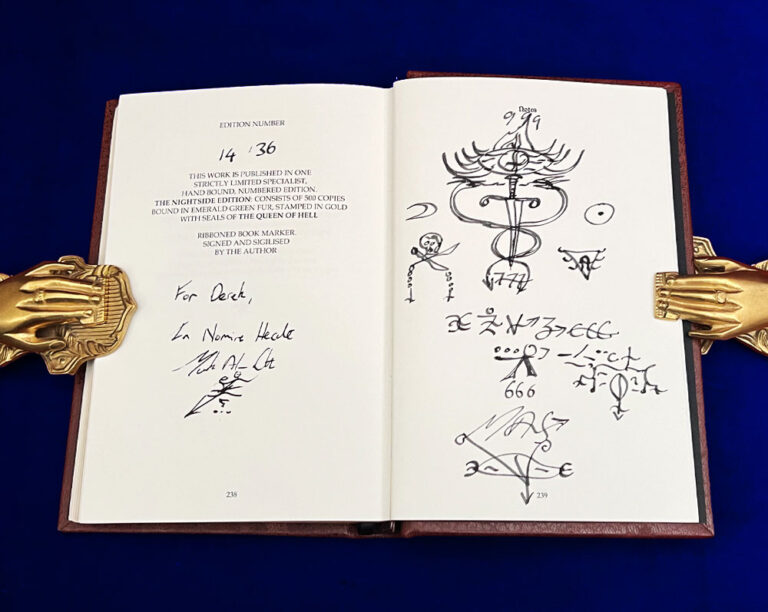 EDITION NUMBER
14 36
THIS WORK IS PUBLISHED IN ONE
STRICTLY LIMITED SPECIALIST,
HAND BOUND, NUMBERED EDITION.
THE NIGHTSIDE EDITION: CONSISTS OF 500 COPIES
BOUND IN EMERALD GREEN FUR, STAMPED IN GOLD
WITH SEALS OF THE QUEEN OF HELL
RIBBONED BOOK MARKER.
SIGNED AND SIGILISED
BY THE AUTHOR
For Derek,
In Nomine Hecate
238
Notes
999
777
666
239